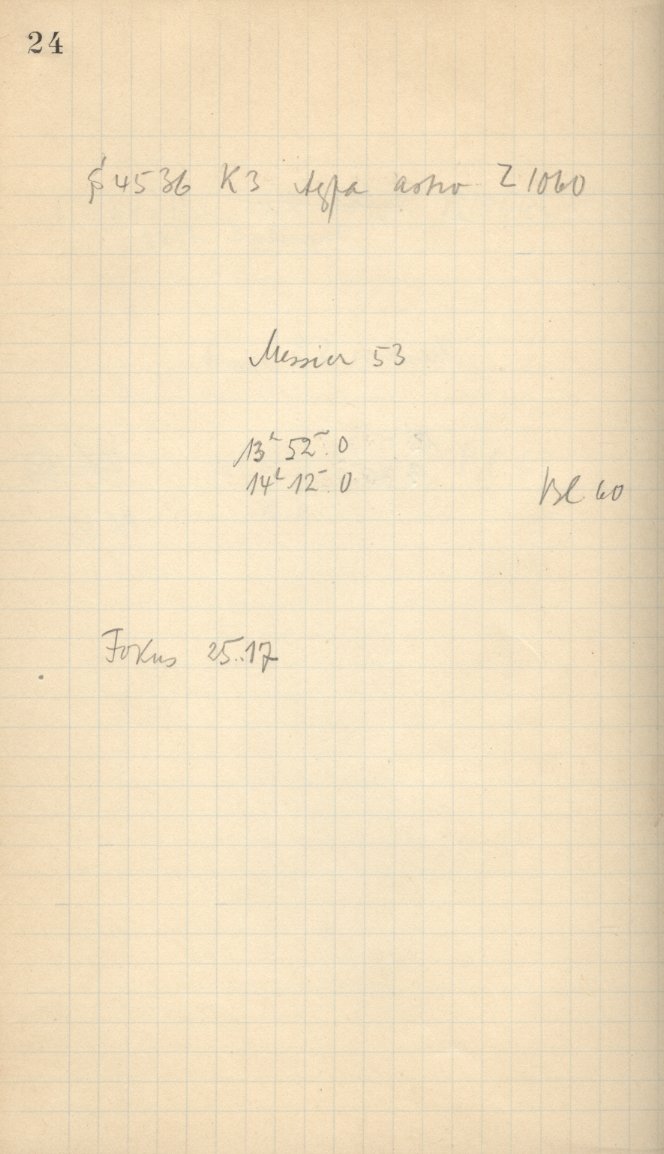 24
S 4536 K3 Agfa astro Z 1060
Messier 53
13ʰ 52ᵐ.0
14ʰ 12ᵐ.0
Bl 60
Fokus 25.17